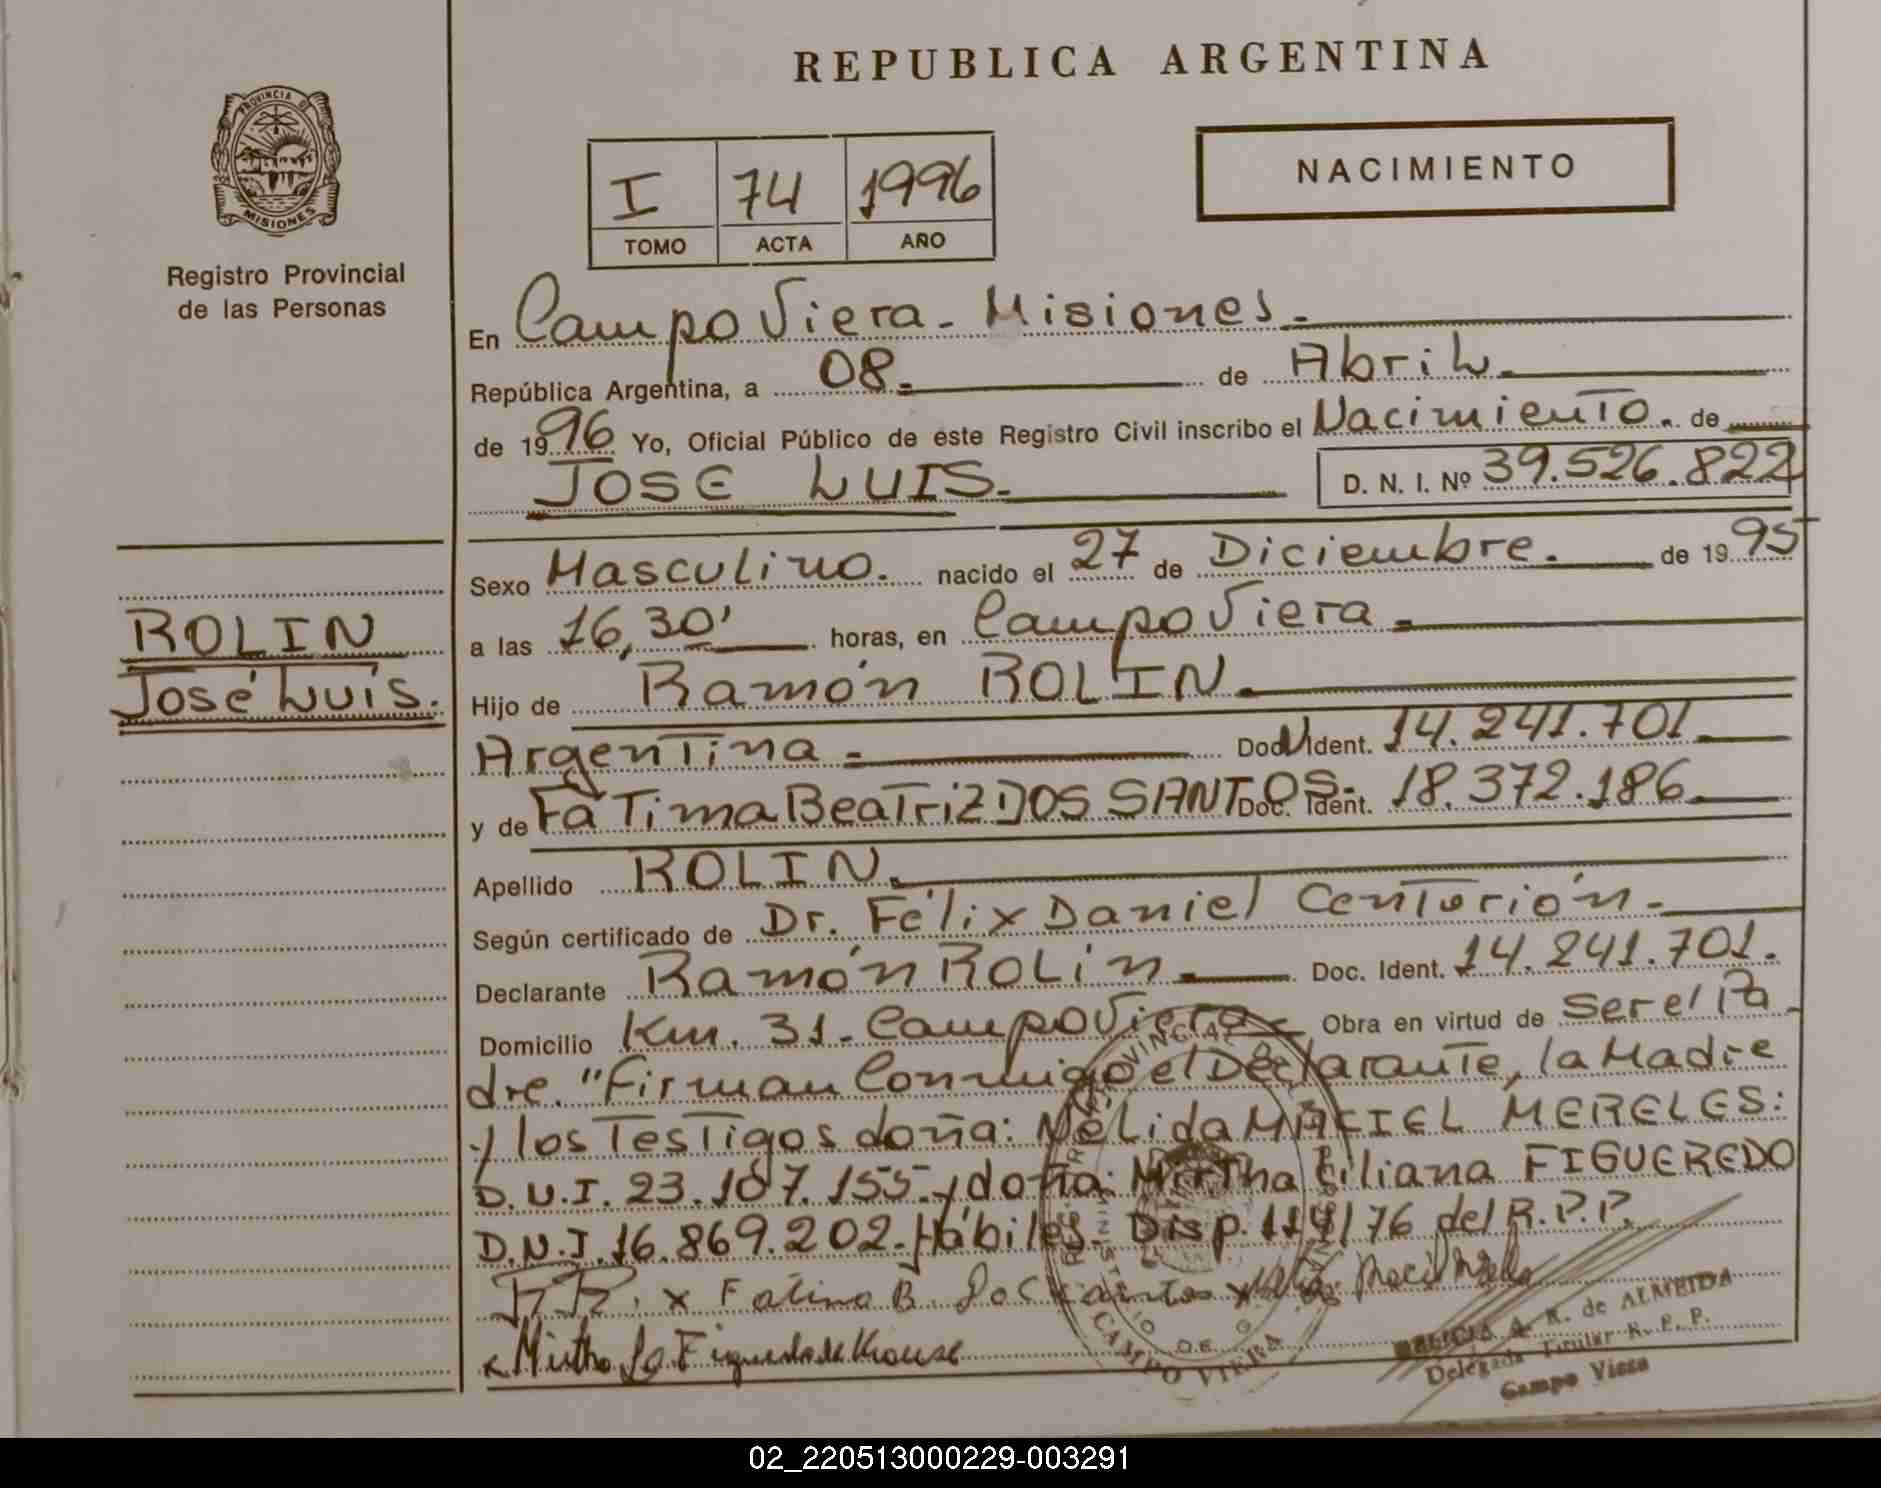 REPUBLICA ARGENTINA
PROVINCIA DE
MISIONES
Registro Provincial
de las Personas
I 74 1996
TOMO ACTA AÑO
NACIMIENTO
En Campo Viera - Misiones.
República Argentina, a 08. de Abril.
de 1996 Yo, Oficial Público de este Registro Civil inscribo el Nacimiento. de
JOSE LUIS. D. N. I. Nº 39.526.822
Sexo Masculino. nacido el 27 de Diciembre. de 1995
a las 16,30' horas, en Campo Viera.
ROLIN
José Luis.
Hijo de Ramón ROLIN.
Argentina - Doc. Ident. 14.241.701
y de FáTima BeaTriz DOS SANTOS. Doc. Ident. 18.372.186
Apellido ROLIN.
Según certificado de Dr. Félix Daniel Centurión.
Declarante Ramón ROLIN. Doc. Ident. 14.241.701.
Domicilio Km. 31 - Campo Viera Obra en virtud de ser el Pa
dre. "Firman Conmigo el Declarante, la Madre
y los Testigos doña: Nélida MACIEL MERELES:
D.N.I. 23.107.155 y doña: Mirtha Liliana FIGUEREDO
D.N.I. 16.869.202. Hábiles. Disp. 114/76 del R.P.P.
R.R. x Fatima B. Dos Santos x
x Mirtha L. Figueredo de Krause
A. R. de ALMEIDA
Delegada Titular R. P. P.
Campo Viera
CAMPO VIERA
02_220513000229-003291